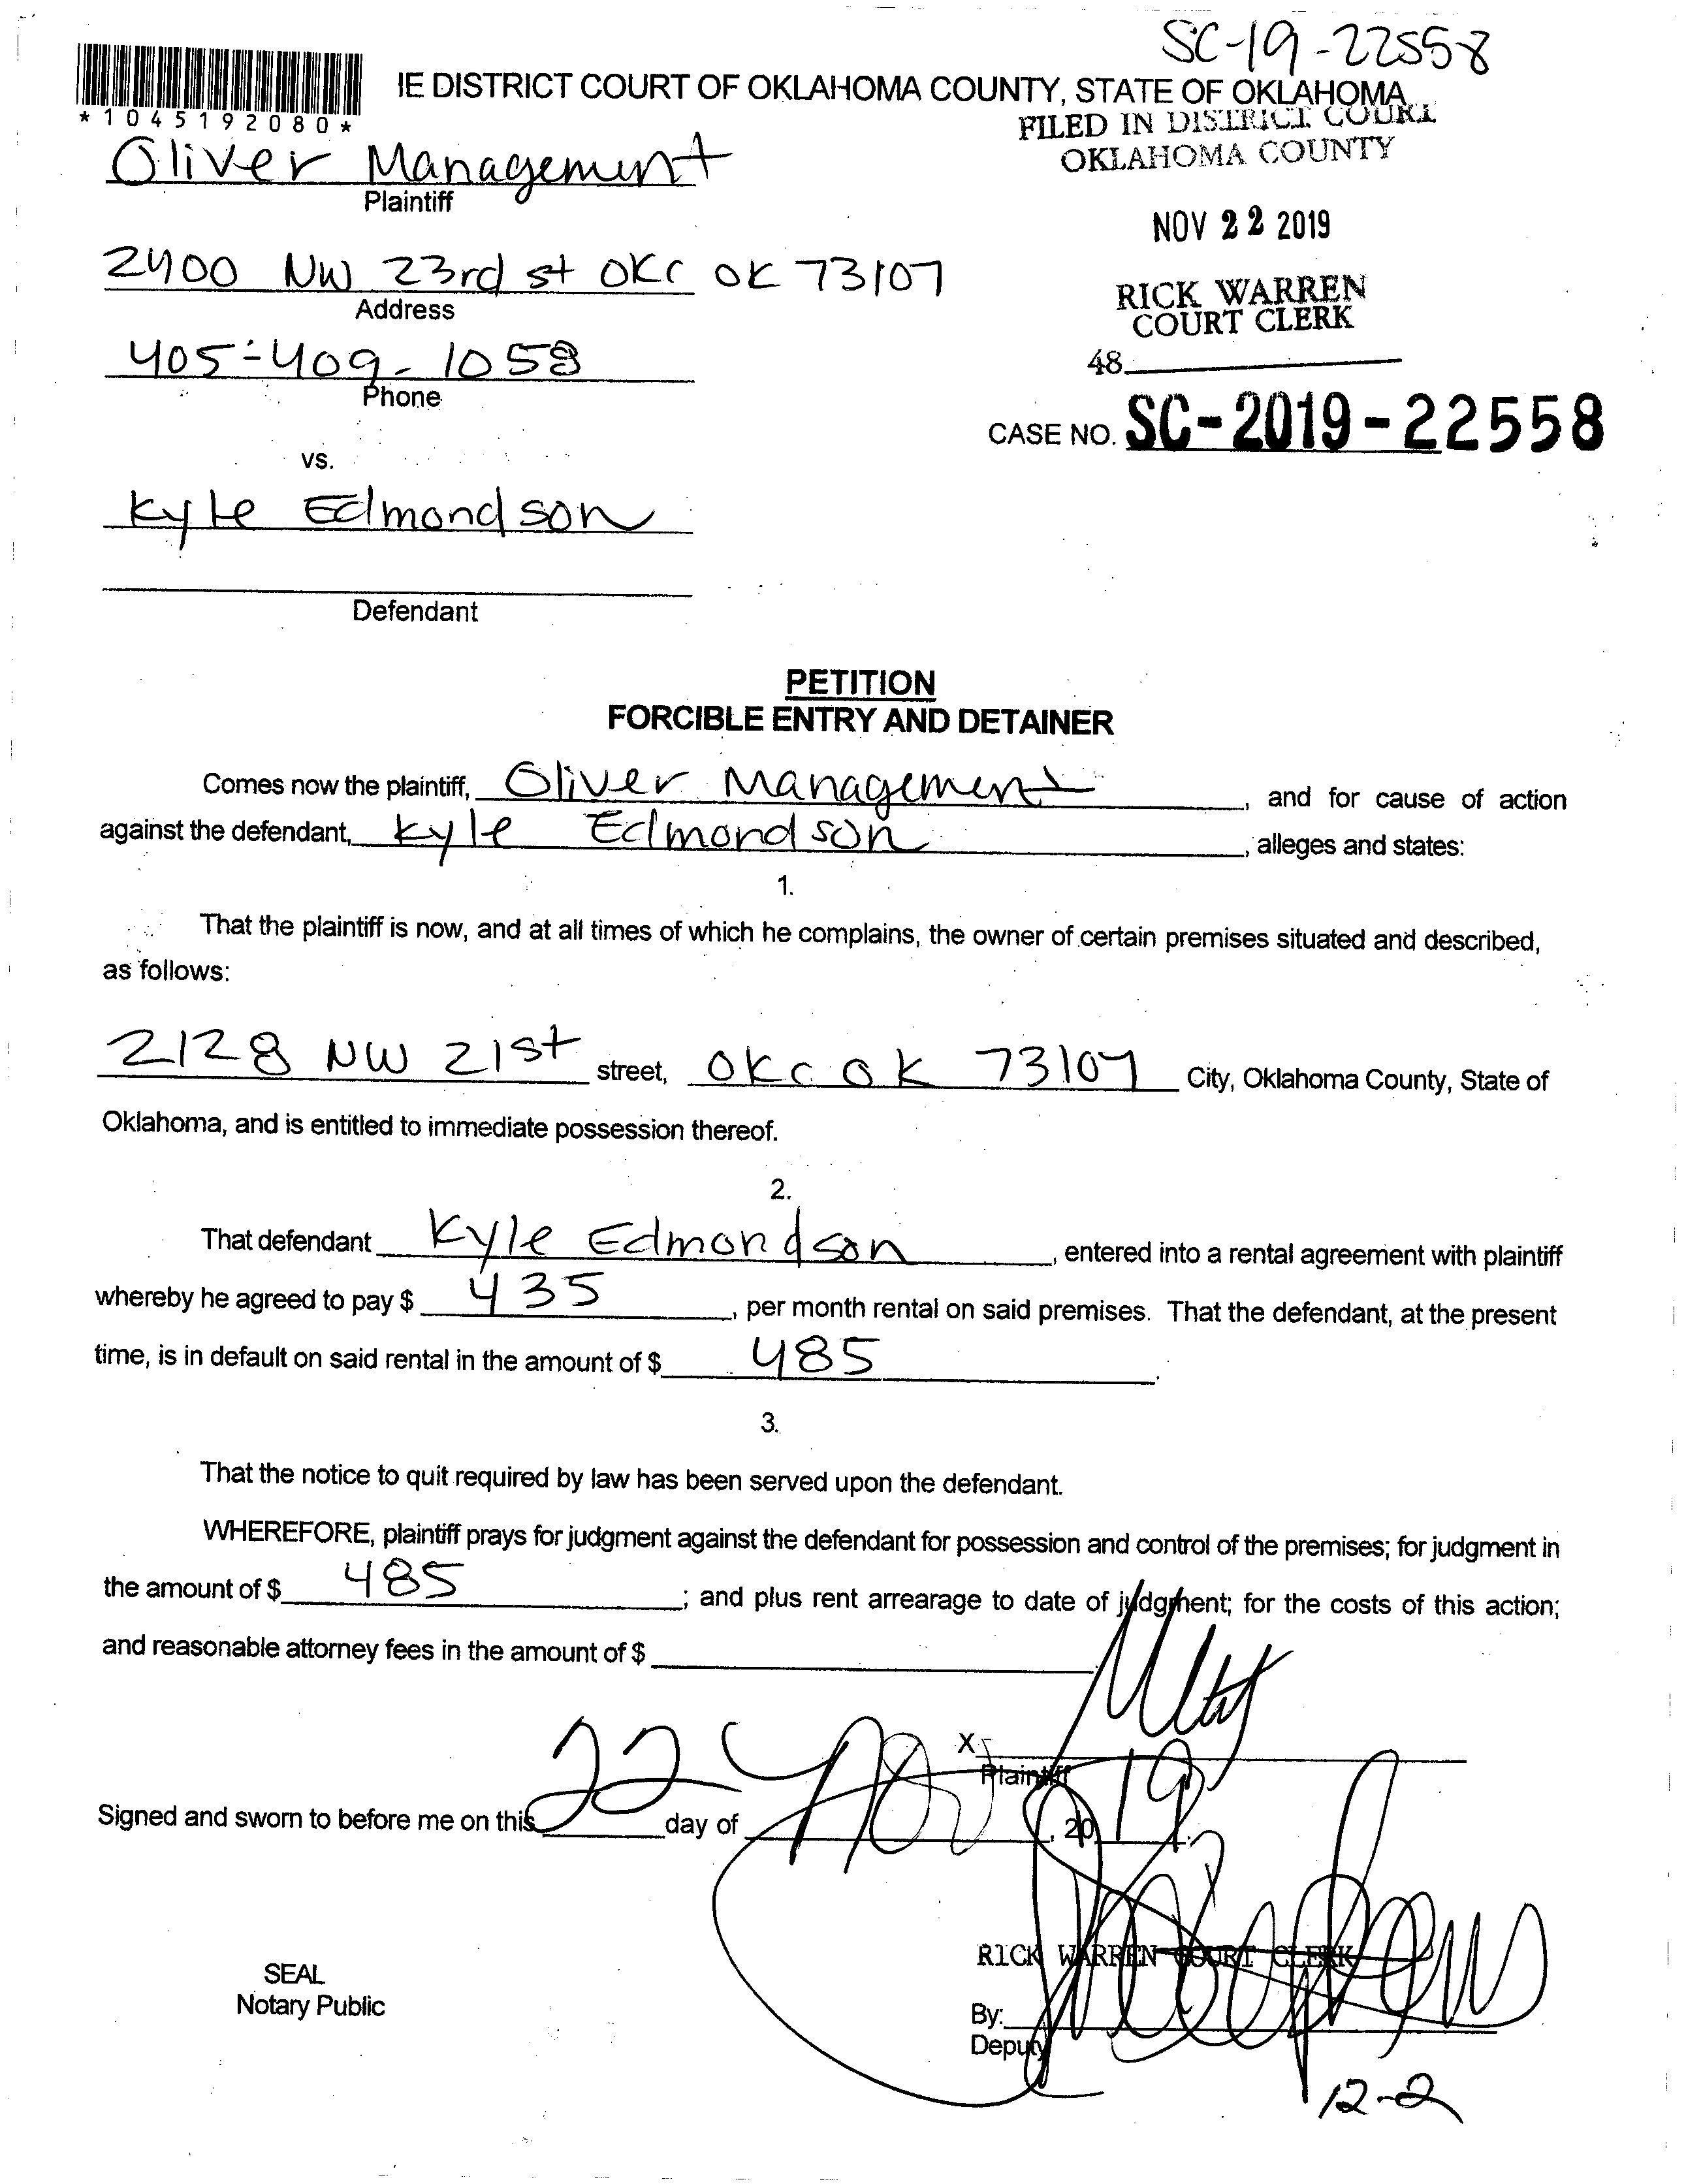 SC-19-22558
IE DISTRICT COURT OF OKLAHOMA COUNTY, STATE OF OKLAHOMA
*1045192080*
FILED IN DISTRICT COURT
OKLAHOMA COUNTY
Oliver Management
Plaintiff
NOV 22 2019
2400 NW 23rd st OKC OK 73107
Address
RICK WARREN
COURT CLERK
405-409-1058
Phone
48
CASE NO. SC-2019-22558
vs.
Kyle Edmondson
Defendant
PETITION
FORCIBLE ENTRY AND DETAINER
Comes now the plaintiff, Oliver Management, and for cause of action
against the defendant, Kyle Edmondson, alleges and states:
1.
That the plaintiff is now, and at all times of which he complains, the owner of certain premises situated and described,
as follows:
2128 NW 21st street, OKC OK 73107 City, Oklahoma County, State of
Oklahoma, and is entitled to immediate possession thereof.
2.
That defendant Kyle Edmondson, entered into a rental agreement with plaintiff
whereby he agreed to pay $ 435, per month rental on said premises. That the defendant, at the present
time, is in default on said rental in the amount of $ 485.
3.
That the notice to quit required by law has been served upon the defendant.
WHEREFORE, plaintiff prays for judgment against the defendant for possession and control of the premises; for judgment in
the amount of $ 485; and plus rent arrearage to date of judgment; for the costs of this action;
and reasonable attorney fees in the amount of $
X
Plaintiff
Signed and sworn to before me on this 22 day of Nov, 20 19.
RICK WARREN COURT CLERK
SEAL
Notary Public
By:
Deputy
12-2